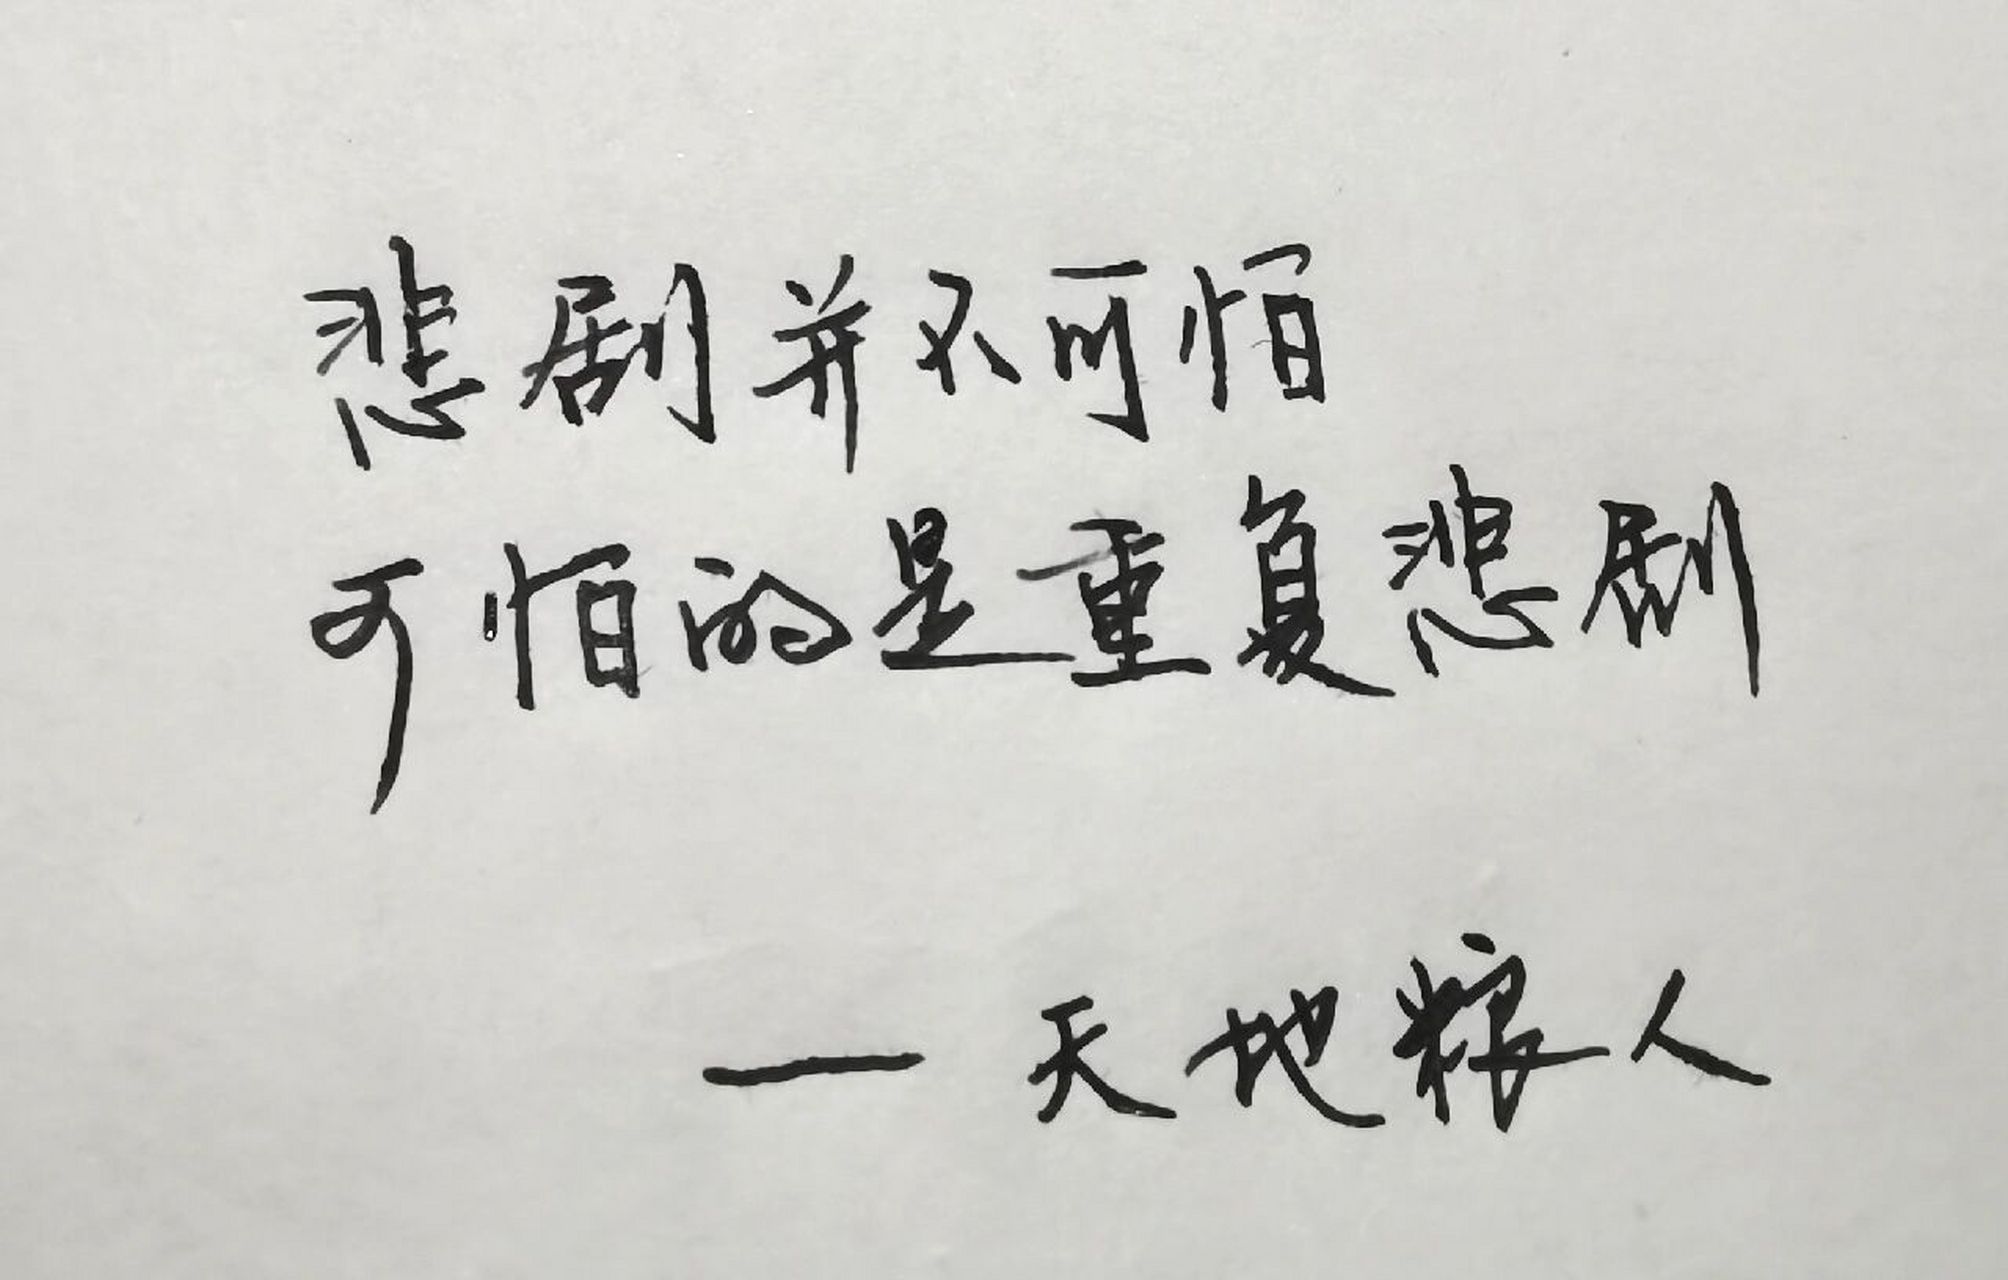 悲剧并不可怕
可怕的是重复悲剧
— 天地粮人